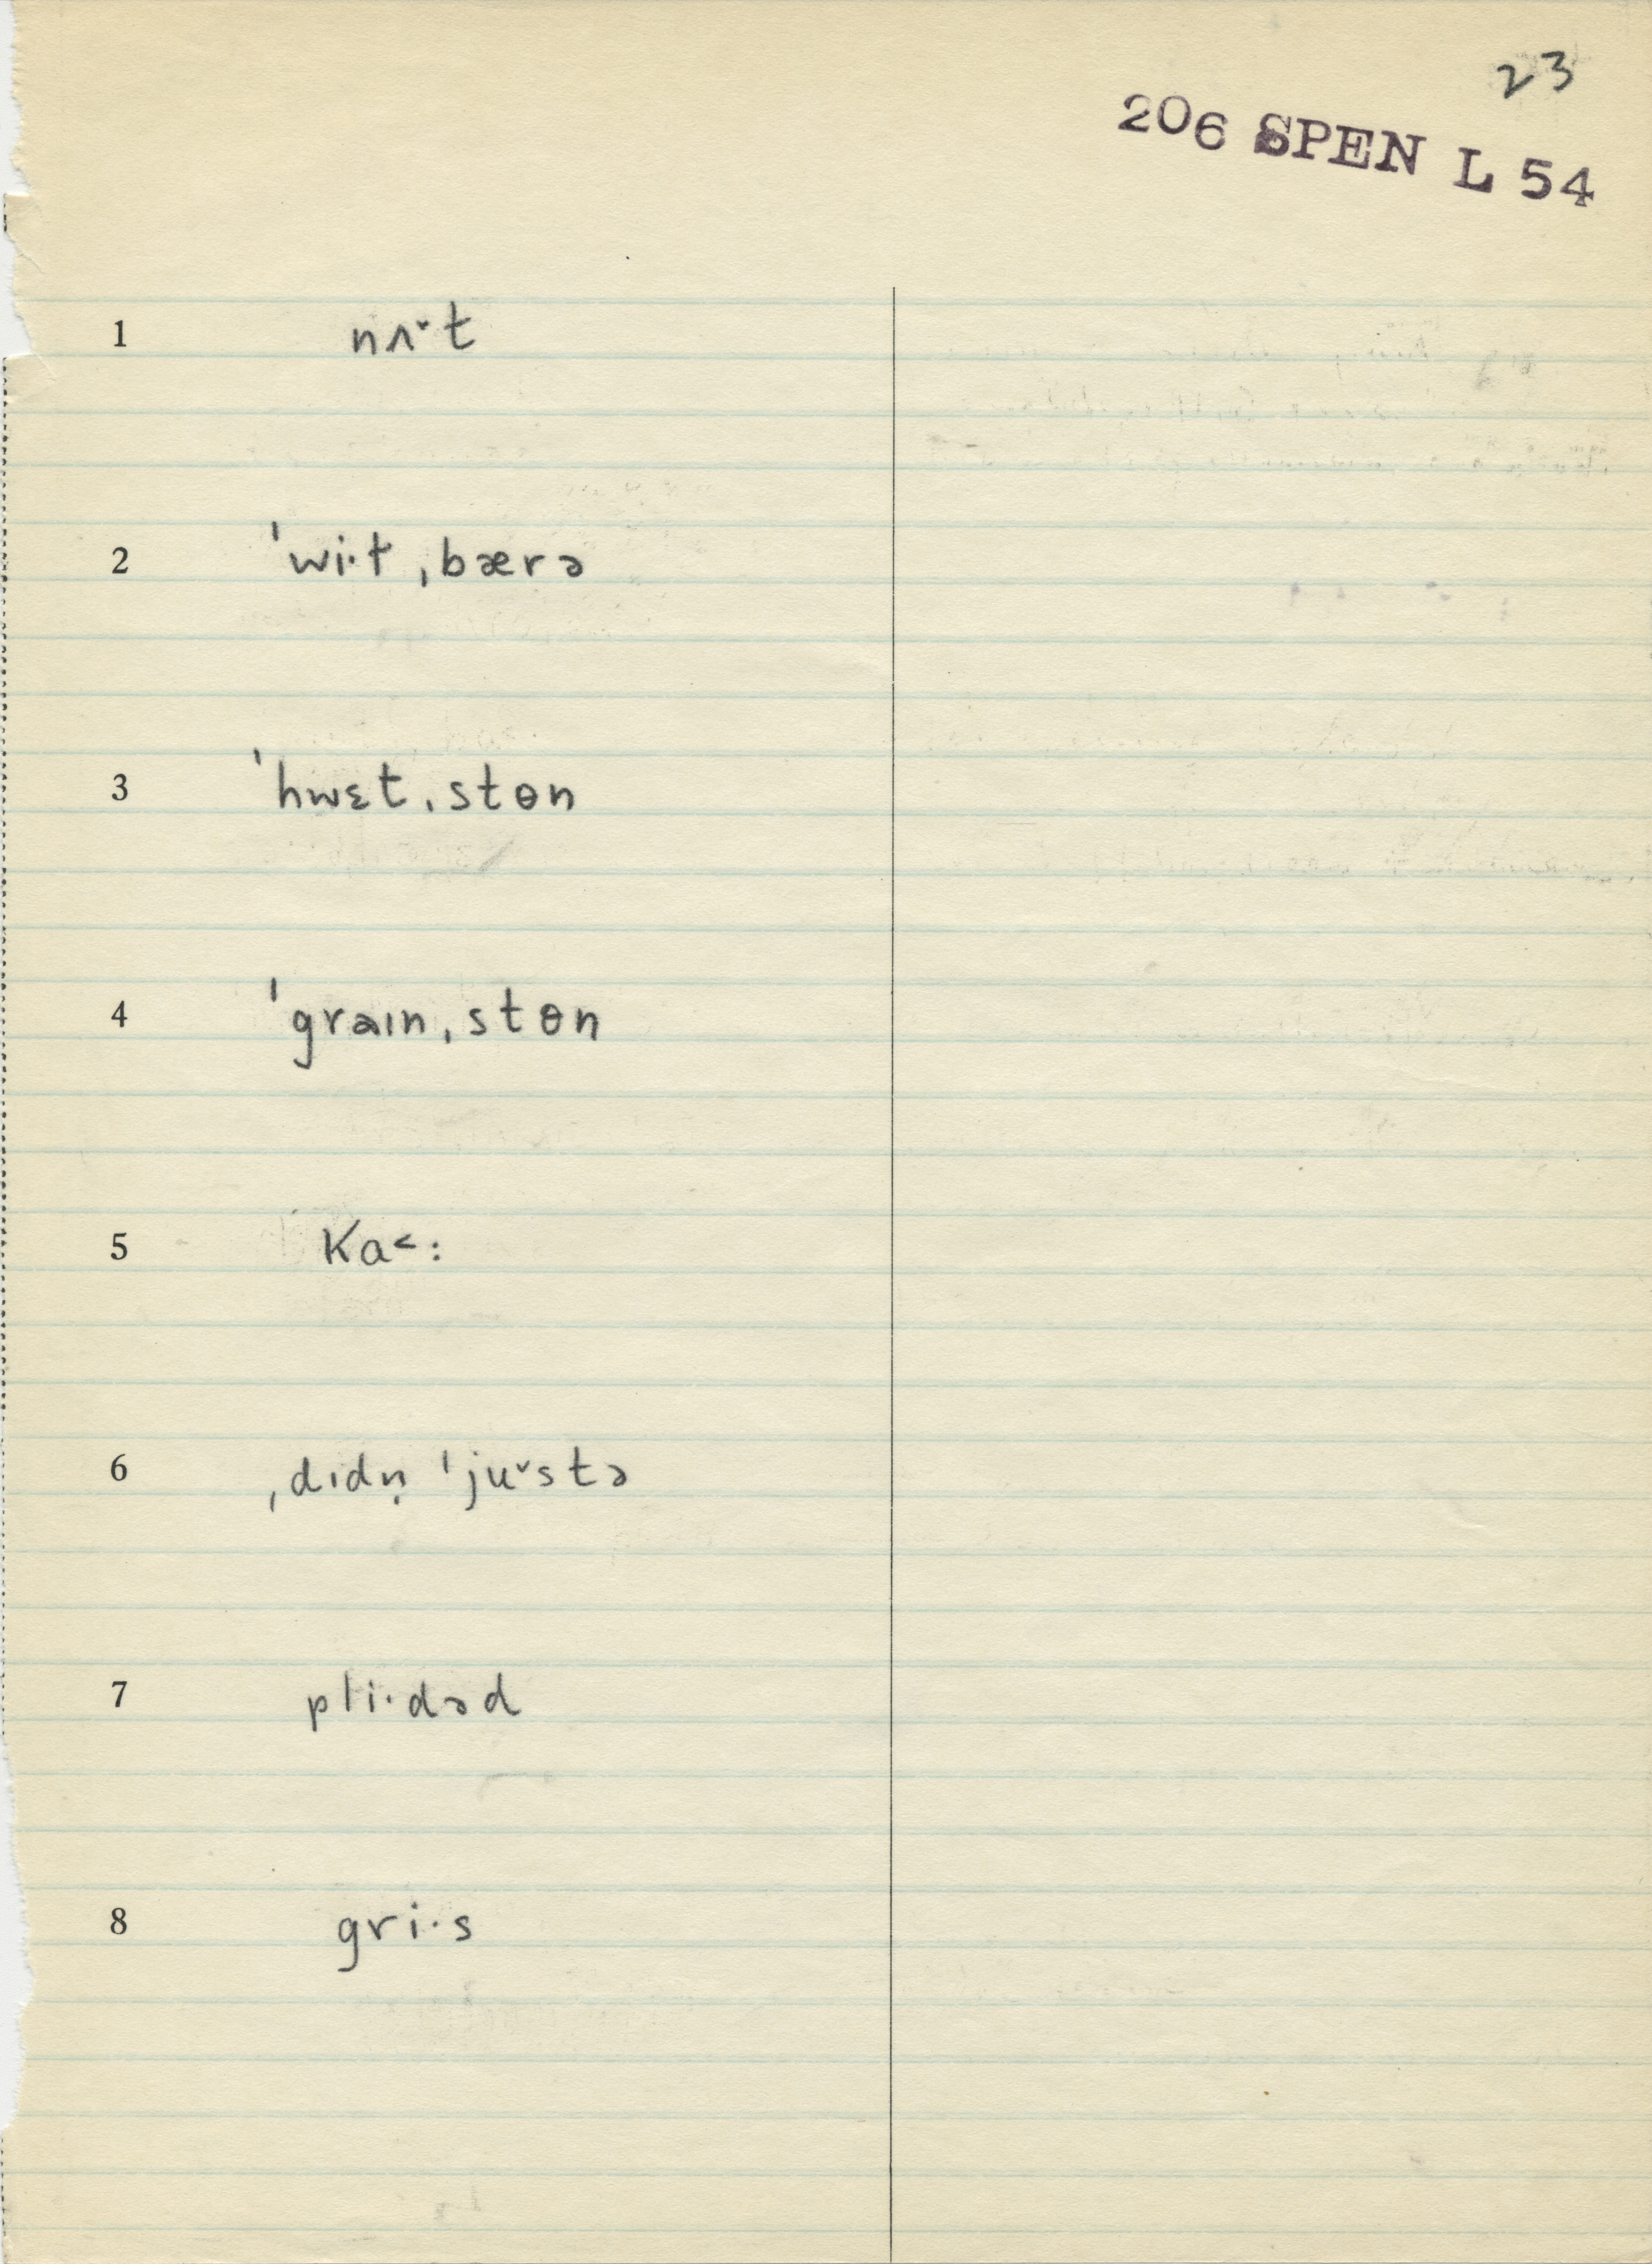 23
206 SPEN L 54
1 nʌ˅t
2 ˈwi·t ˌbærə
3 ˈhwɛt ˌstɵn
4 ˈgraɪn ˌstɵn
5 Ka˂:
6 ˌdɪdn̩ ˈju˅stə
7 pli·dəd
8 gri·s